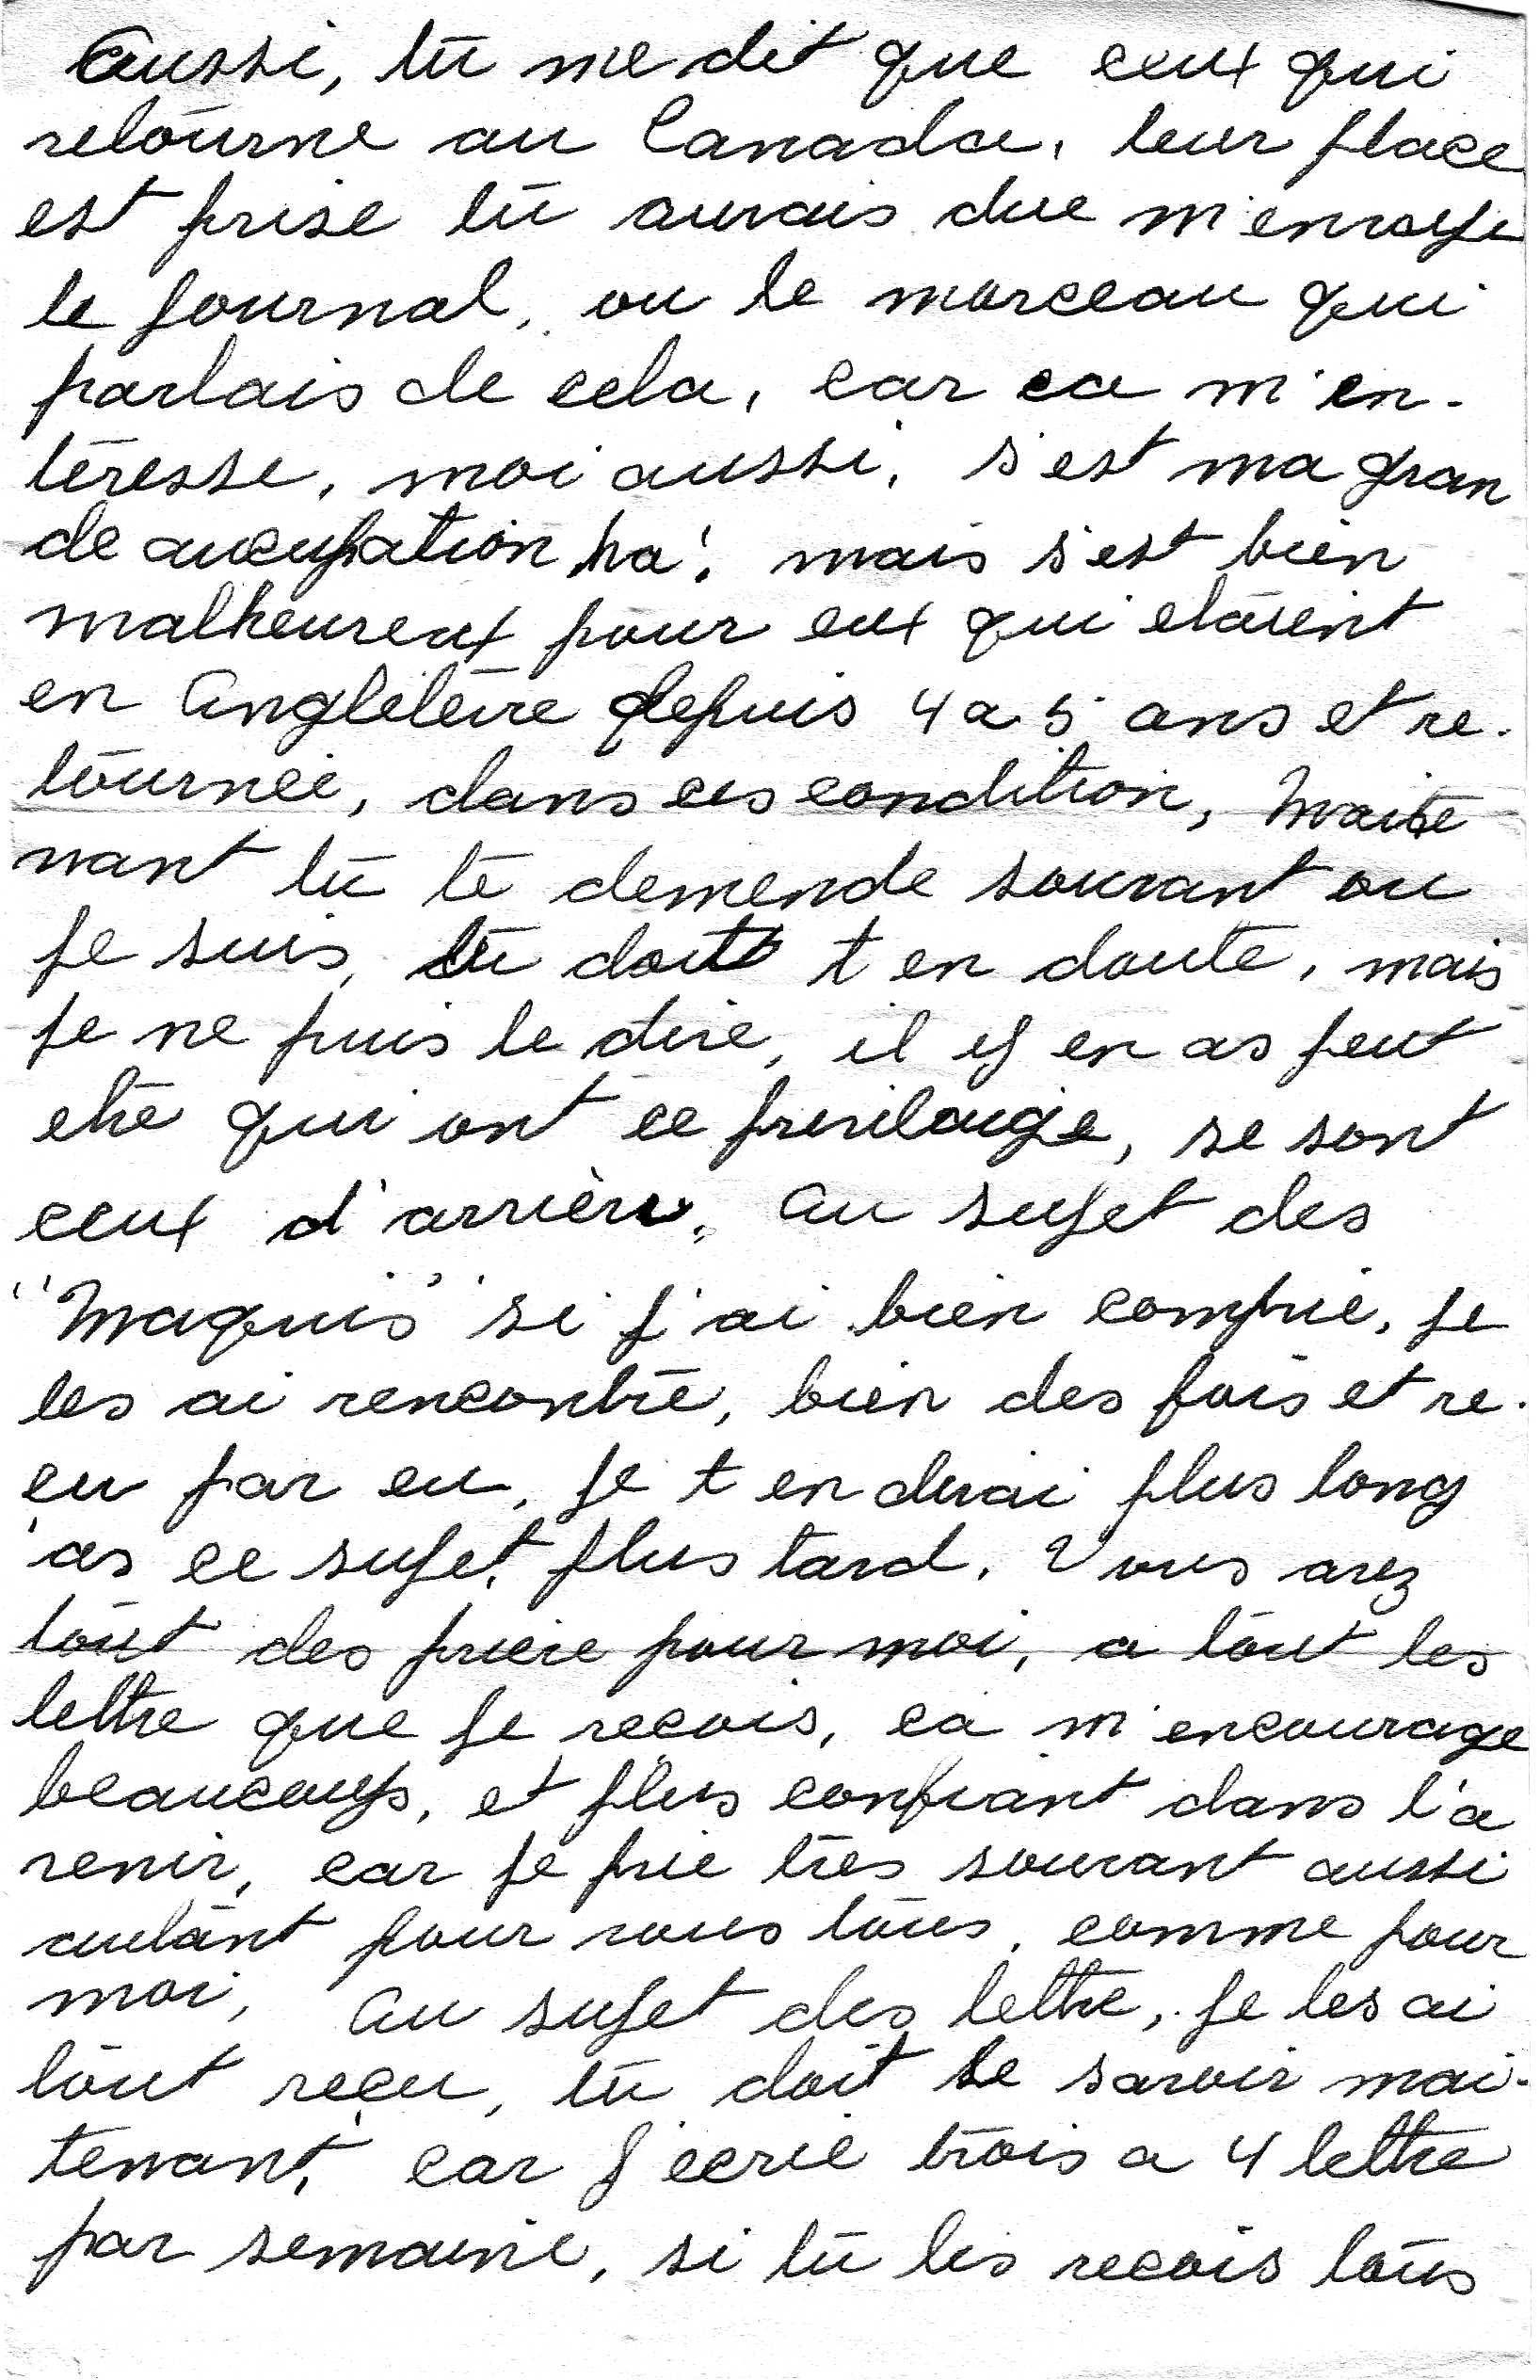 Aussi, tu me dit que ceux qui
retourne au Canada, leur place
est prise tu aurais due m'envoye
le journal, ou le morceau qui
parlais de cela, car ca m'en-
téresse, moi aussi, s'est ma gran
de aucupation, ha! mais s'est bien
malheureux pour eux qui etaient
en Angletére depuis 4 a 5 ans et re-
tournée, dans ces condition, Maite
nant tu te demende souvant ou
je suis, tu doit t en doute, mais
je ne puis le dire, il y en as peut
etre qui ont ce privilaige, se sont
ceux d'arrière. Au sujet des
"Maquis" si j'ai bien comprie, je
les ai rencontré, bien des fois et re-
çu par eu, je t en dirai plus long
as ce sujet, plus tard. Vous avez
tout des priere pour moi, a tout les
lettre que je recois, ca m'encourage
beaucoup, et plus confiant dans l'a
venir, car je prie très souvant aussi
autant pour vous tous, comme pour
moi, Au sujet des lettre, je les ai
tout reçu, tu doit le savoir mai-
tenant, car j'ecrie trois a 4 lettre
par semaine, si tu les recois tous